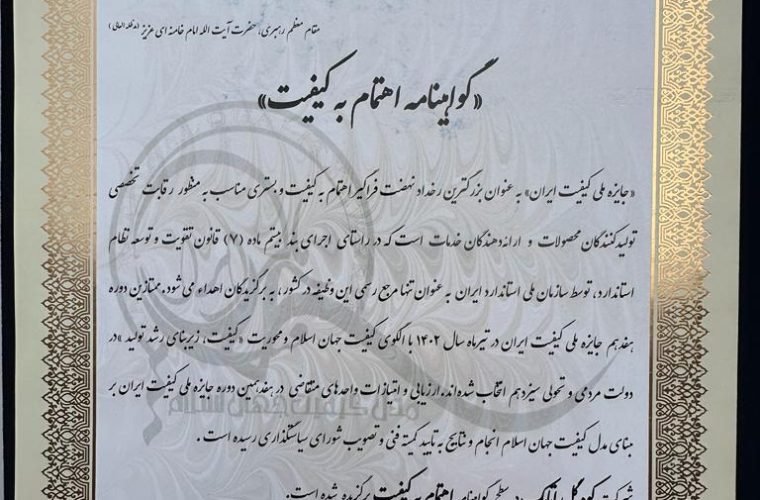 مقام معظم رهبری، حضرت آیت الله امام خامنه ای عزیز (مدظله العالی)
«گواهینامه اهتمام به کیفیت»
«جایزه ملی کیفیت ایران» به عنوان بزرگترین رخداد نهضت فراگیر اهتمام به کیفیت و بستری مناسب به منظور رقابت تخصصی
تولیدکنندگان محصولات و ارائه‌دهندگان خدمات است که در راستای اجرای بند بیستم ماده (۷) قانون تقویت و توسعه نظام
استاندارد، توسط سازمان ملی استاندارد ایران به عنوان تنها مرجع رسمی این وظیفه در کشور، به برگزیدگان اهداء می شود. ممتازین دوره
هفدهم جایزه ملی کیفیت ایران در تیرماه سال ۱۴۰۲ با الگوی کیفیت جهان اسلام و محوریت «کیفیت، زیربنای رشد تولید» در
دولت مردمی و تحولی سیزدهم انتخاب شده‌اند. ارزیابی و امتیازات واحدهای متقاضی در هفدهمین دوره جایزه ملی کیفیت ایران بر
مدل کیفیت جهان اسلام
مبنای مدل کیفیت جهان اسلام انجام و نتایج به تایید کمیته فنی و تصویب شورای سیاستگذاری رسیده است.
شرکت در سطح گواهینامه اهتمام به کیفیت برگزیده شده است.